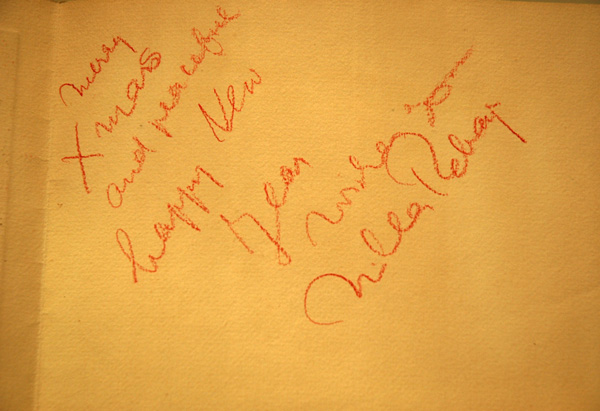 merry
Xmas
and peaceful
happy New
Year
wishes you
Hilla Rebay